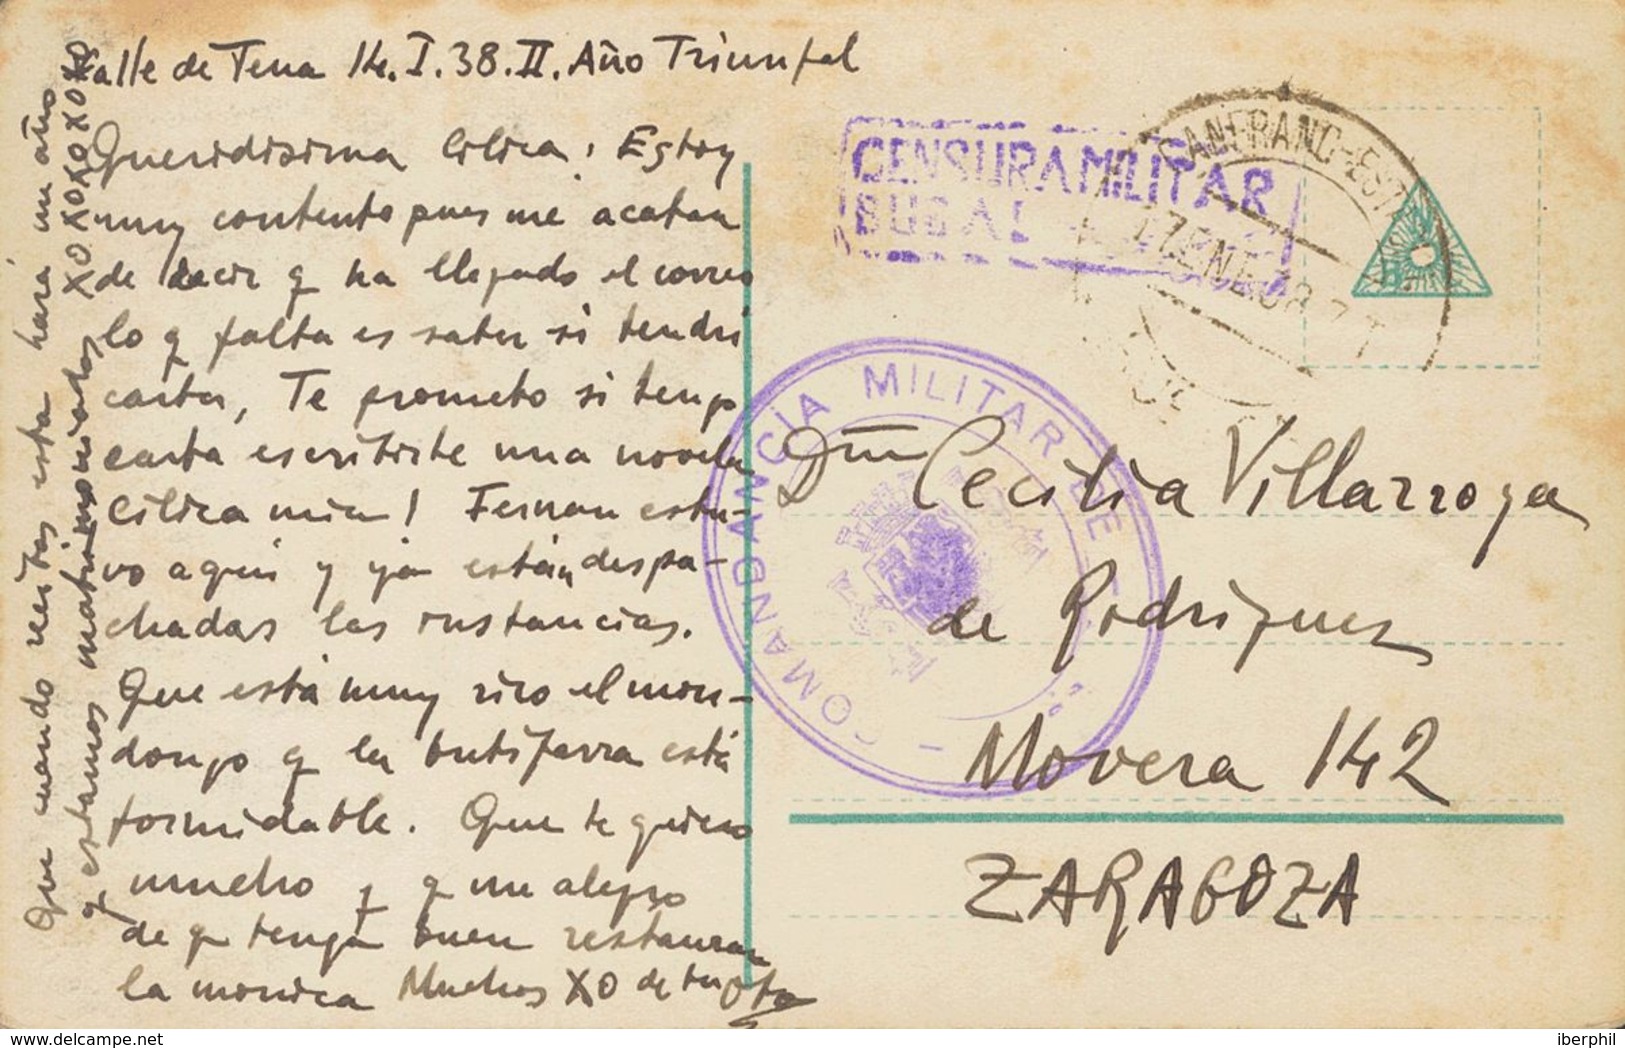 Valle de Tena 14.I.38.II.Año Triunfal
Queridisima Cilica: Estoy
muy contento pues me acaban
de decir q ha llegado el correo
lo q falta es saber si tendré
carta, Te prometo si tengo
carta escribirte una novela
Cilica mia! Fernan estu-
vo aquí y ya están despa-
chadas las instancias.
Que está muy rico el mon-
dongo q la butifarra está
formidable. Que te quiero
mucho y q me alegro
de q tenga buen restauran
la monica Muchos XO de tu
Que cuando recibas esta hará un año
q estamos matrimoniados XOXOXOXOXO
CENSURA MILITAR
CANFRANC-EST
17 ENE 38
COMANDANCIA MILITAR DE
Dña Cecilia Villarroya
de Rodriguez
Movera 142
ZARAGOZA
iberphil